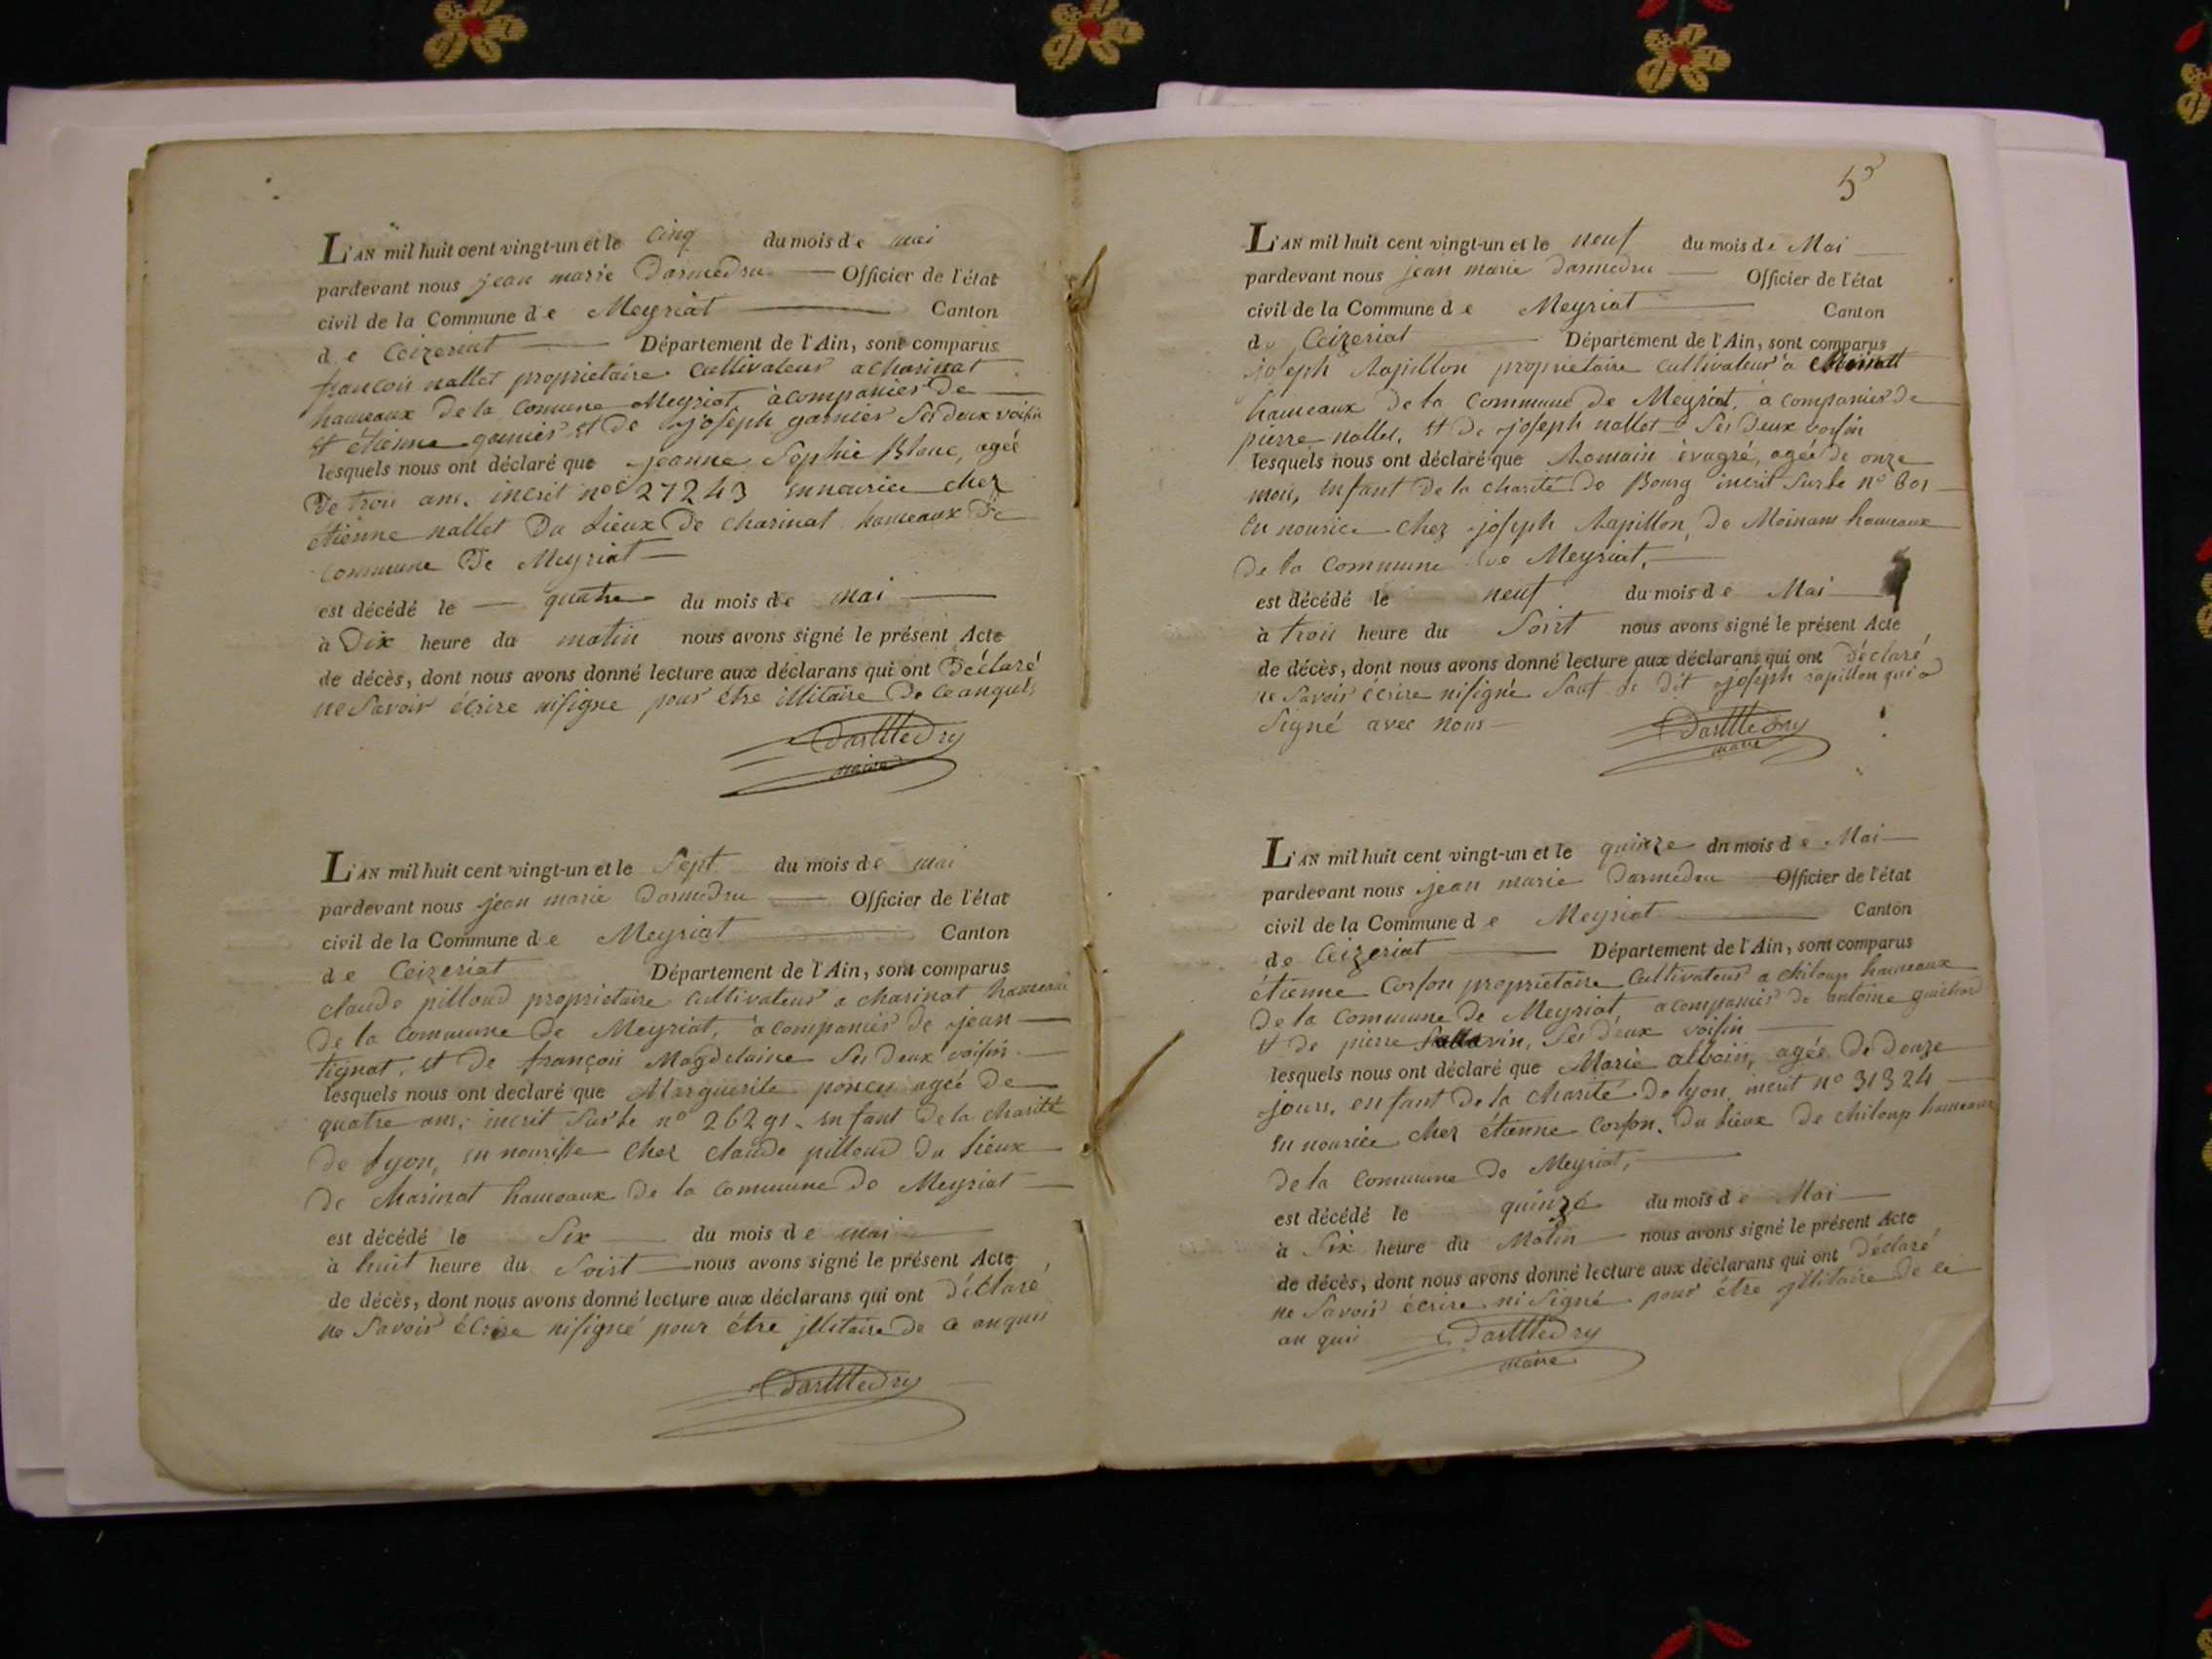 L'AN mil huit cent vingt-un et le cinq du mois de mai
pardevant nous jean marie Darmedru Officier de l'état
civil de la Commune de Meyriat Canton
de Ceizeriat Département de l'Ain, sont comparus
francois nallet proprietaire cultivateur a charinat
hameaux de la comune Meyriat, acompanies de
et étienne garnier et de joseph garnier ses deux voisin
lesquels nous ont déclaré que jeanne Sophie Blanc, ageé
de trois ans, incrit no 27243 en nourice chez
etienne nallet Du Lieux De charinat hameaux De
commune De Meyriat
est décédé le quatre du mois de mai
à Dix heure du matin nous avons signé le présent Acte
de décès, dont nous avons donné lecture aux déclarans qui ont Déclaré
ne Savoir écrire ni signe pour étre illitaire De ce anquis
DarMedry
maire
L'AN mil huit cent vingt-un et le Sept du mois de mai
pardevant nous jean marie Darmedru Officier de l'état
civil de la Commune de Meyriat Canton
de Ceizeriat Département de l'Ain, sont comparus
claude pilloud proprietaire cultivateur a charinat hameaux
de la Commune de Meyriat, acompanies de jean
tignat, et de françois Magdelaine ses deux voisin
lesquels nous ont declaré que Marguerite poncu ageé de
quatre ans, incrit sur le no 26291 enfant de la charité
de Lyon, en nourisse chez claude pilloud du Lieux
de charinat hameaux de la commune de Meyriat
est décédé le Six du mois de mai
à huit heure du Soirt nous avons signé le présent Acte
de décès, dont nous avons donné lecture aux déclarans qui ont déclaré
ne Savoir écrire ni signé pour étre illitaire de ce anquis
DarMedry
5
L'AN mil huit cent vingt-un et le neuf du mois de Mai
pardevant nous jean marie Darmedru Officier de l'état
civil de la Commune de Meyriat Canton
de Ceizeriat Département de l'Ain, sont comparus
joseph Rapillon proprietaire cultivateur a
hameaux de la Commune de Meyriat, a companies de
pierre nallet, et de joseph nallet ses deux voisin
lesquels nous ont déclaré que Romain évagré, ageé de onze
mois, enfant de la charité de Bourg incrit sur le no 601
en nourice chez joseph Rapillon, de Moinans hameaux
de la commune de Meyriat,
est décédé le neuf du mois de Mai
à trois heure du Soirt nous avons signé le présent Acte
de décès, dont nous avons donné lecture aux déclarans qui ont déclaré
ne Savoir écrire ni signé Sauf le dit joseph rapillon qui a
Signé avec nous
DarMedry
maire
L'AN mil huit cent vingt-un et le quinze du mois de Mai
pardevant nous jean marie Darmedru Officier de l'état
civil de la Commune de Meyriat Canton
de Ceizeriat Département de l'Ain, sont comparus
étienne Corson proprietaire Cultivateur a chiloup hameaux
De la commune de Meyriat, acompanies de antoine guichard
et de pierre Sallavin, ses deux voisin
lesquels nous ont déclaré que Marie alboin, ageé De douze
jours, enfant De la charité de lyon, incrit no 31324
en nourice chez étienne Corson, du Lieux de chiloup hameaux
de la commune de Meyriat,
est décédé le quinze du mois de Mai
à Six heure du Matin nous avons signé le présent Acte
de décès, dont nous avons donné lecture aux déclarans qui ont déclaré
ne Savoir écrire ni signé pour étre illitaire de ce
an quis DarMedry
maire